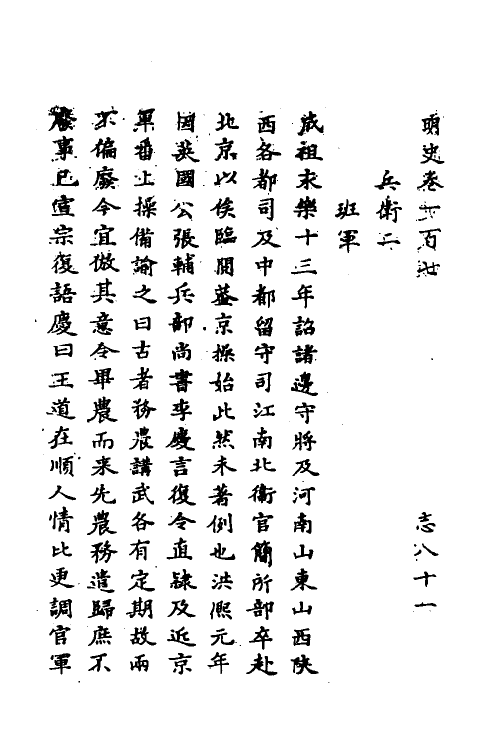 明史卷一百廿 志八十一
兵衛二
班軍
成祖永樂十三年詔諸邊守將及河南山東山西陝
西各都司及中都留守司江南北衛官簡所部卒赴
北京以俟臨閱蓋京操始此然未著例也洪熙元年
因英國公張輔兵部尚書李慶言復令直隸及近京
軍番上操備諭之曰古者務農講武各有定期故兩
不偏廢今宜倣其意令畢農而來先農務遣歸庶不
廢事已宣宗復語慶曰王道在順人情比更調官軍